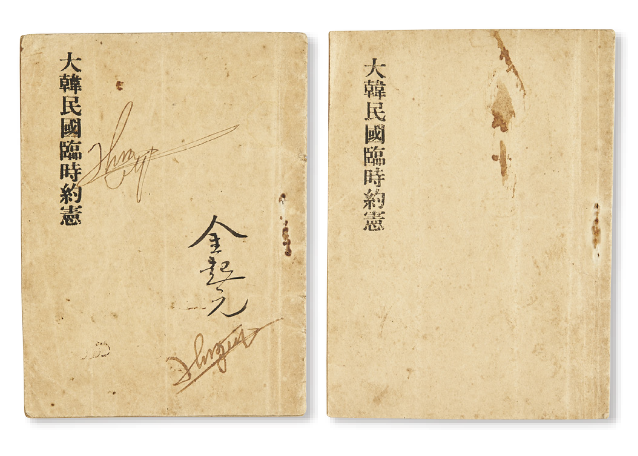 大韓民國臨時約憲
金起元
大韓民國臨時約憲